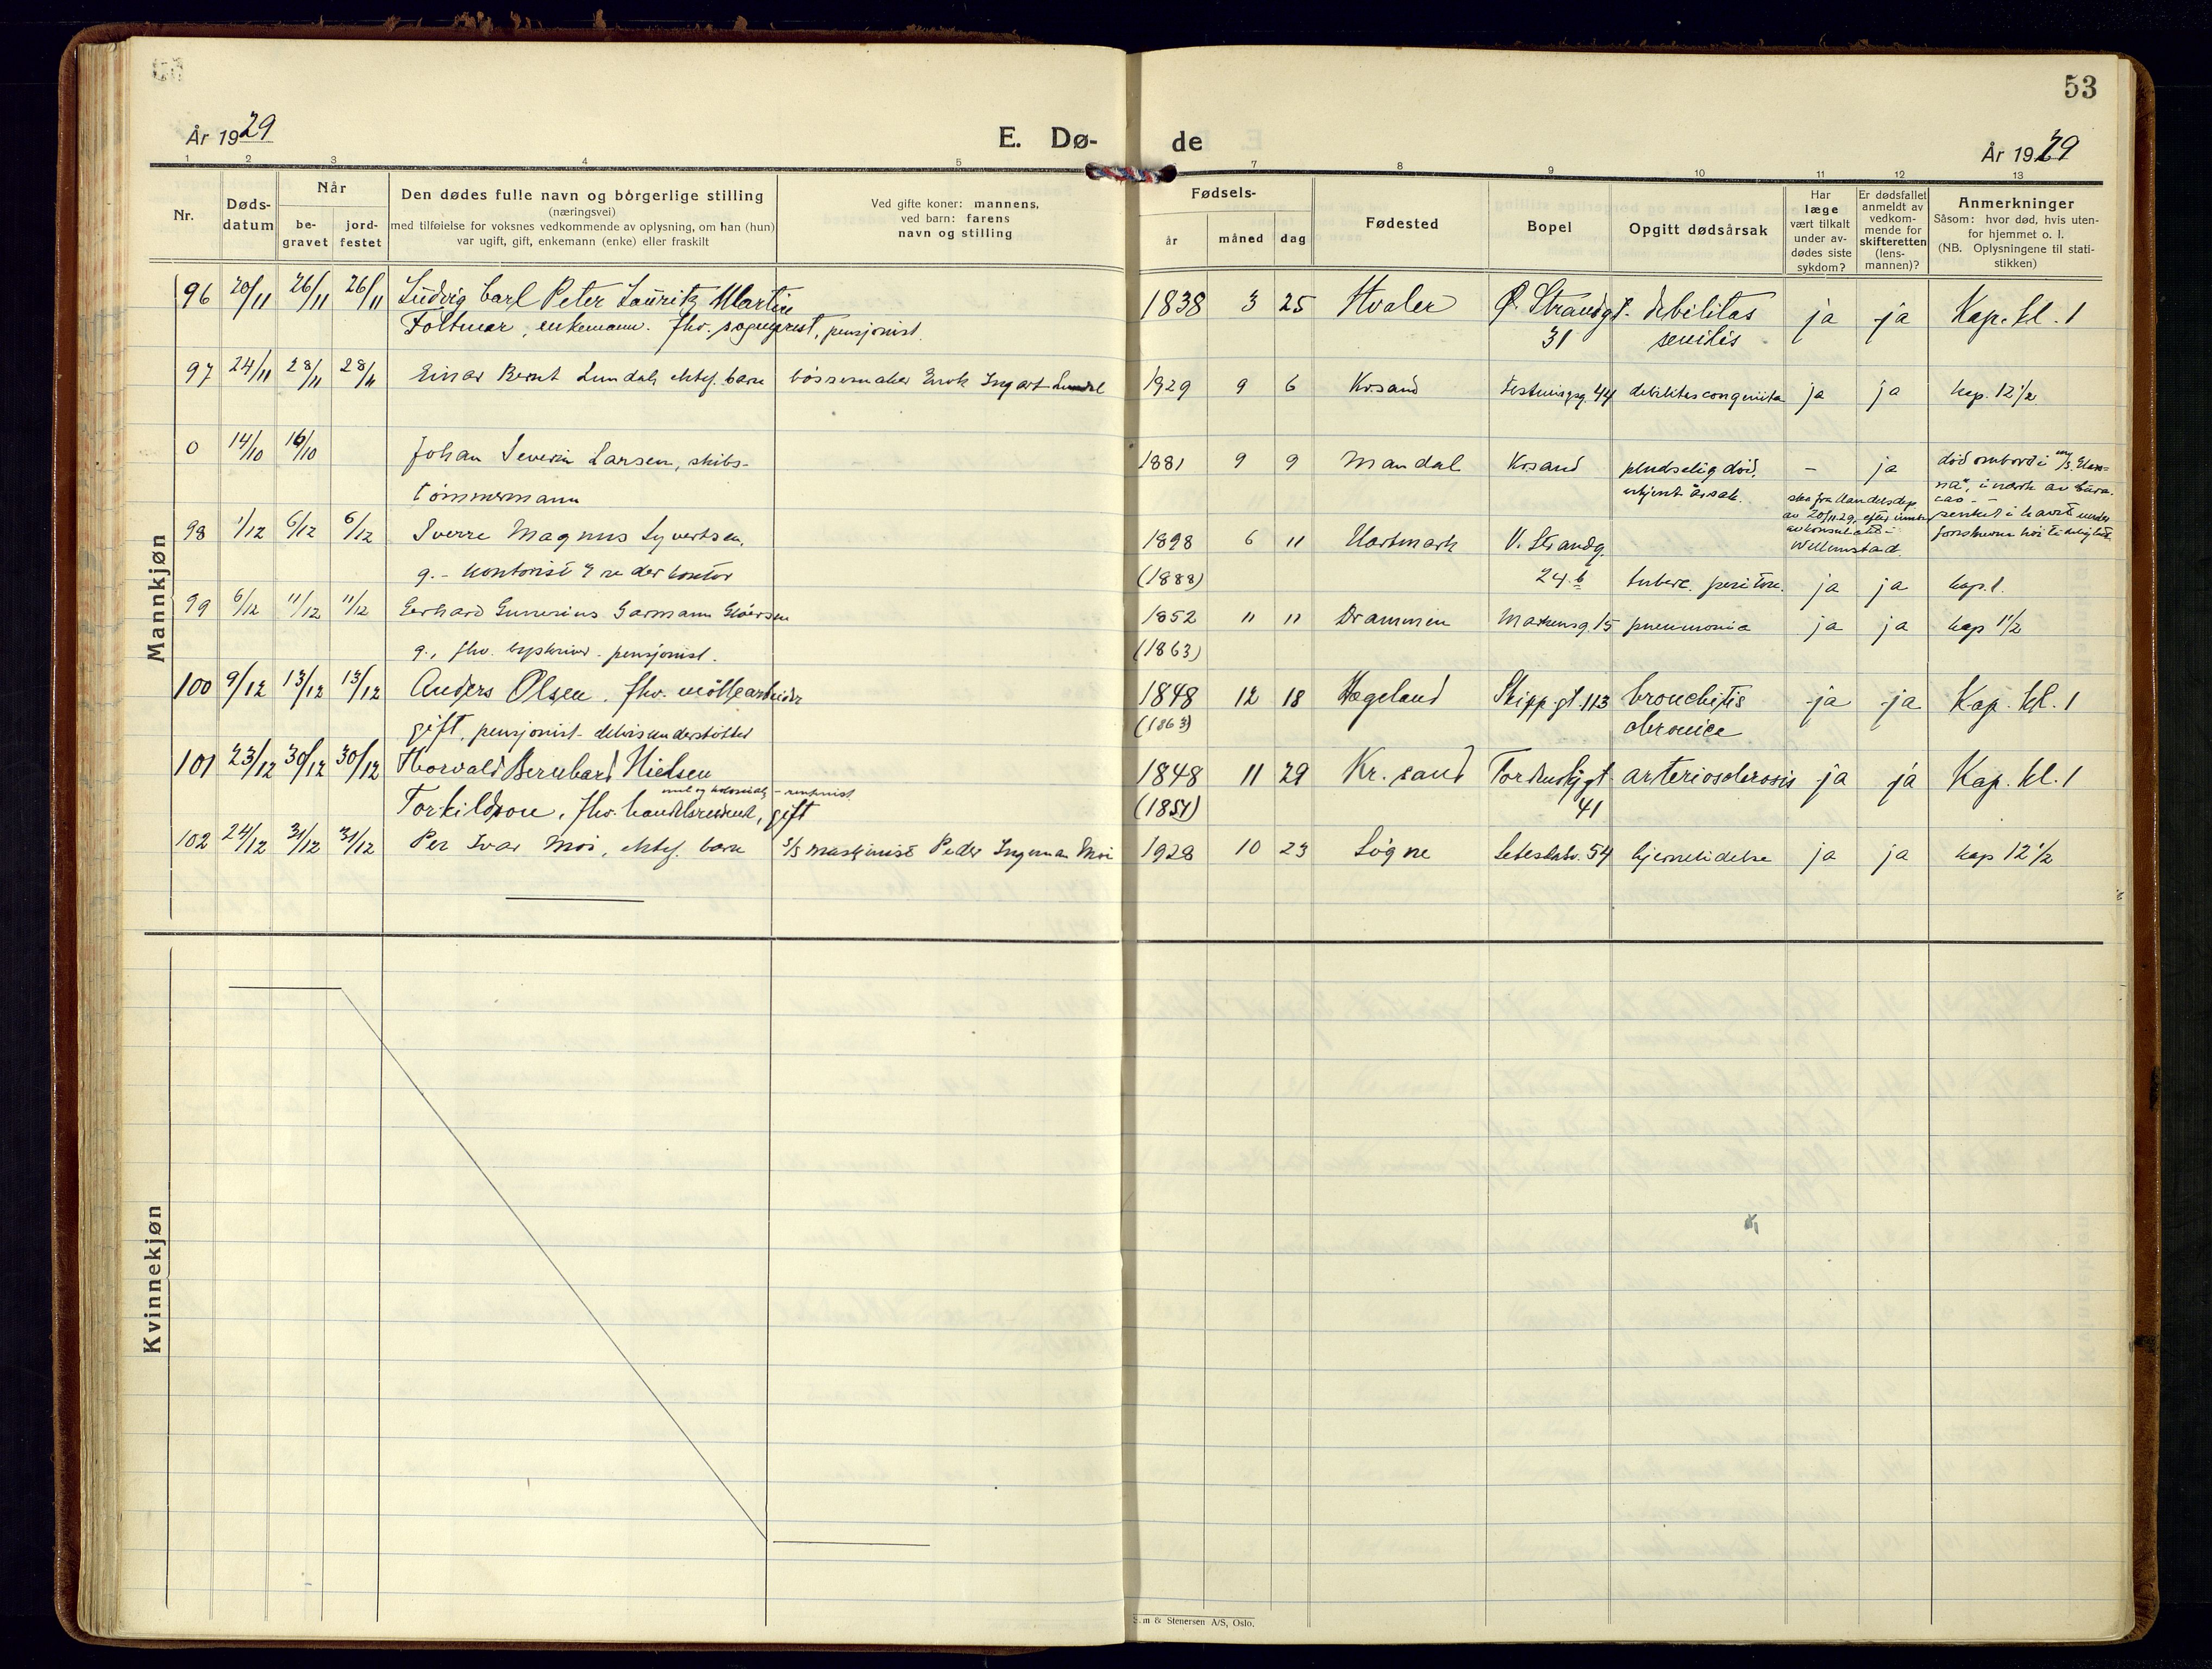 53
År 1929
E. Dø-
de
År 1929
1 2 3 4 5 7 8 9 10 11 12 13
Nr.
Døds-
datum
Når
be-
gravet
jord-
festet
Den dødes fulle navn og borgerlige stilling
(næringsvei)
med tilføielse for voksnes vedkommende av oplysning, om han (hun)
var ugift, gift, enkemann (enke) eller fraskilt
Ved gifte koner: mannens,
ved barn: farens
navn og stilling
Fødsels-
år
måned
dag
Fødested
Bopel
Opgitt dødsårsak
Har
læge
vært tilkalt
under av-
dødes siste
sykdom?
Er dødsfallet
anmeldt av
vedkom-
mende for
skifteretten
(lens-
mannen)?
Anmerkninger
Såsom: hvor død, hvis uten-
for hjemmet o. l.
(NB. Oplysningene til stati-
stikken)
Mannkjøn
96 20/11 26/11 26/11 Ludvig Carl Peter Lauritz Martin 1838 3 25 Hvaler Ø. Strandgt. debilitas ja ja Kap. kl. 1
Foltmar, enkemann. fhv. sogneprest, pensjonist. 31 senilis
97 24/11 28/11 28/11 Einar Bernt Lundal, ektef. barn bøssemaker Enok Ingart Lundal 1929 9 6 Krsand Festningsg. 44 debilitas congenita ja ja kap. 12 1/2
0 14/10 16/10 Johan Severin Larsen, skibs- 1881 9 9 Mandal Krsand pludselig død, - ja død ombord i m/s.
tømmermann ukjent årsak.
skr. fra Handelsdep.
av 20/11.29, efter
av konsulatet i
Willemstad.
i nærh. av Cura-
cao -
senket i havet under
98 1/12 6/12 6/12 Sverre Magnus Syvertsen, 1898 6 11 Hartmark V. Strandg.
g. - kontorist rederkontor (1888) 24 b tuberc. periton. ja ja kap. 1.
99 6/12 11/12 11/12 Gerhard Gunerius Garmann Gløersen 1852 11 11 Drammen Markensg. 15 pneumonia ja ja kap 1 1/2
g., fhv. byskriver - pensjonist. (1863)
100 9/12 13/12 13/12 Anders Olsen. fhv. møllearbeider 1848 12 18 Hægeland Skipp.gt. 113 bronchitis ja ja Kap. kl. 1
gift, pensjonist - delvis understøttet (1863) chronica
101 23/12 30/12 30/12 Thorvald Bernhard Nielsen 1848 11 29 Kr.sand Tordenskj.gt. arteriosclerosis ja ja Kap. kl. 1
Torkildsen, fhv. handelsreisend, gift (1851) 41
102 24/12 31/12 31/12 Per Ivar Moi, ektef. barn s/s maskinist Peder Ingeman Moi 1928 10 23 Søgne Setesdalsv. 54 hjernelidelse ja ja kap 12 1/2
Kvinnekjøn
& Stenersen A/S, Oslo.